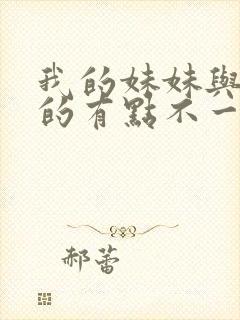 我的妹妹與
的有點不一
郝蕾